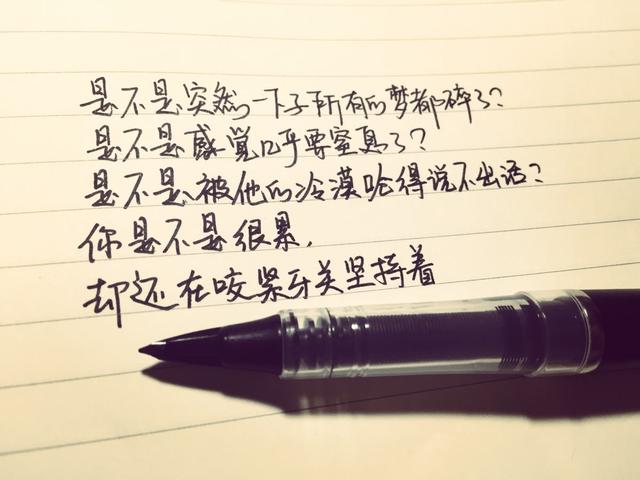 是不是突然一下子所有的梦都碎了?
是不是感觉几乎要窒息了?
是不是被他的冷漠呛得说不出话?
你是不是很累,
却还在咬紧牙关坚持着